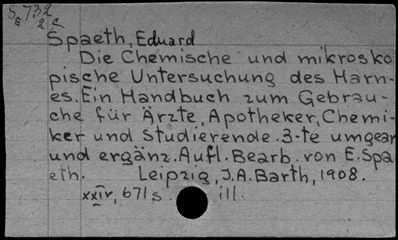 S 732
E 2 C
Spaeth, Eduard
Die Chemische und mikrosko
pische Untersuchung des Harn-
es. Ein Handbuch zum Gebrau-
che für Ärzte, Apotheker, Chemi-
ker und Studierende. 3-te umgear
und ergänz. Aufl. Bearb. von E. Spa
eth. Leipzig, J. A. Barth, 1908.
xxiv, 671 s. ill.